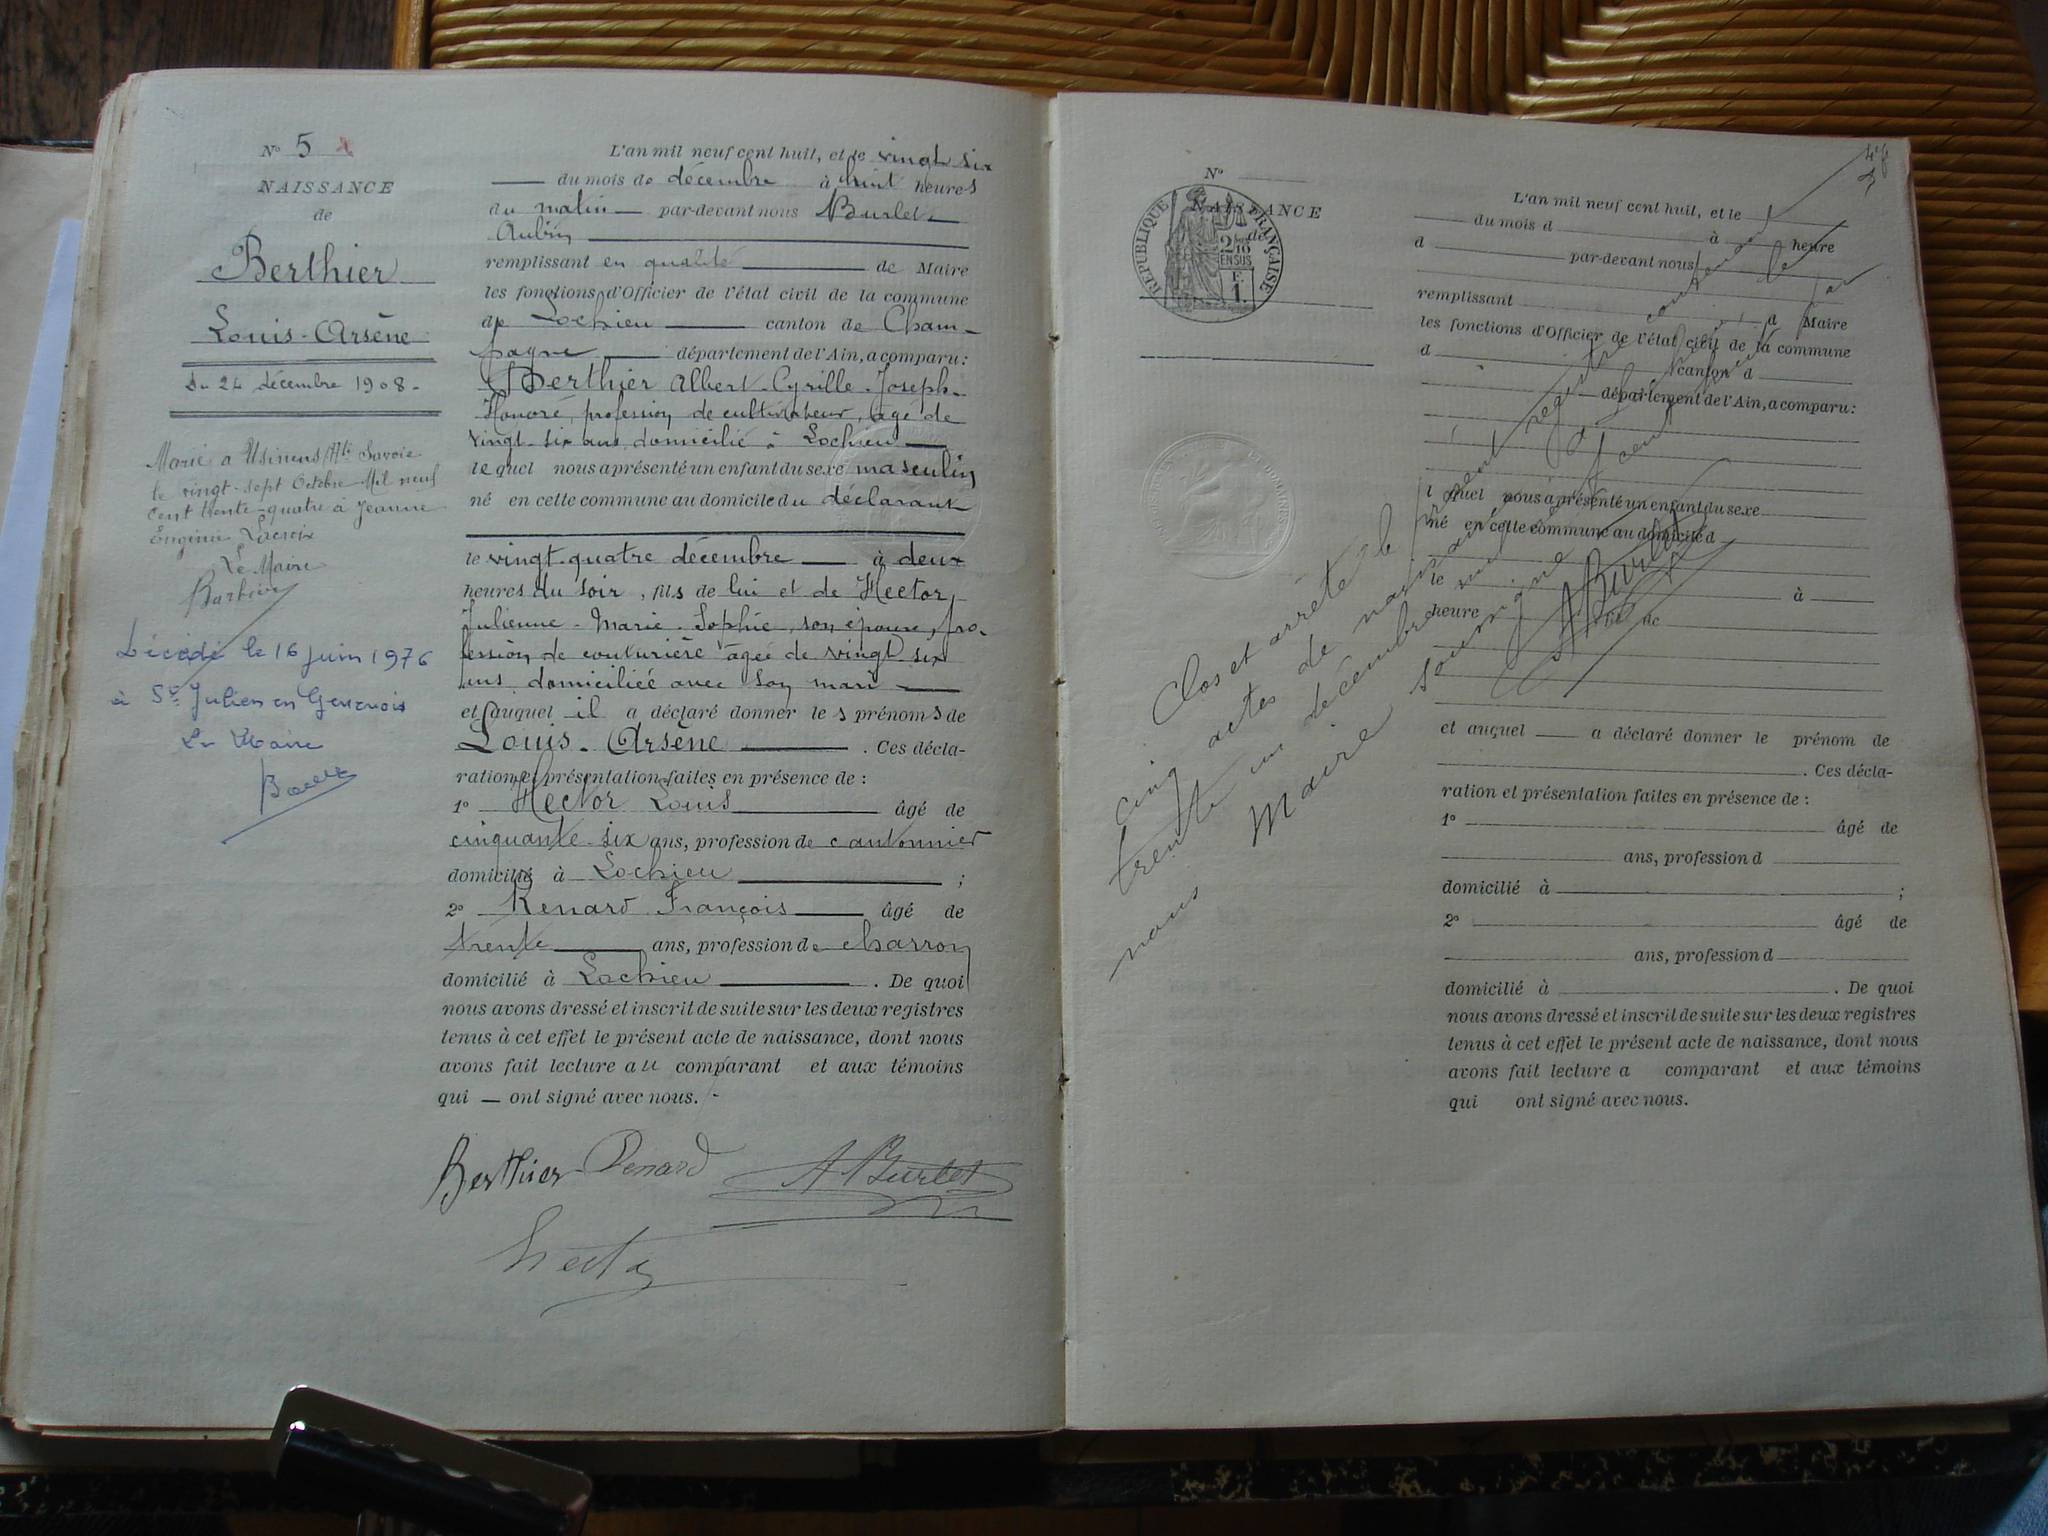 N° 5
NAISSANCE
de
Berthier
Louis-Arsène
Du 24 décembre 1908-
Marié à Usinens Hte Savoie
le vingt-sept Octobre Mil neuf
cent trente-quatre à Jeanne
Eugénie Lacroix
Le Maire
Décédé le 16 juin 1976
à St Julien en Genevois
Le Maire
L'an mil neuf cent huit, et le vingt six
du mois de décembre à huit heures
du matin par-devant nous Burlet
Aubin
remplissant en qualité de Maire
les fonctions d'Officier de l'état civil de la commune
de Lochieu canton de Cham-
pagne département de l'Ain, a comparu:
Berthier Albert-Cyrille-Joseph-
Honoré, profession de cultivateur, âgé de
vingt-six ans domicilié à Lochieu
lequel nous a présenté un enfant du sexe masculin
né en cette commune au domicile du déclarant
le vingt-quatre décembre à deux
heures du soir, fils de lui et de Hector,
Julienne-Marie-Sophie, son épouse, pro-
fession de couturière âgée de vingt six
ans domiciliée avec son mari
et auquel il a déclaré donner les prénoms de
Louis-Arsène. Ces décla-
ration et présentation faites en présence de :
1° Hector Louis âgé de
cinquante-six ans, profession de cantonnier
domicilié à Lochieu ;
2° Renard François âgé de
trente ans, profession de charron
domicilié à Lochieu. De quoi
nous avons dressé et inscrit de suite sur les deux registres
tenus à cet effet le présent acte de naissance, dont nous
avons fait lecture au comparant et aux témoins
qui — ont signé avec nous.
Berthier Renard A Burlet
Hector
N°
NAISSANCE
de
RÉPUBLIQUE FRANÇAISE
2/10 EN SUS
F.
1.
L'an mil neuf cent huit, et le
du mois d à heure
d par-devant nous
remplissant d Maire
les fonctions d'Officier de l'état civil de la commune
d canton d
département de l'Ain, a comparu:
l quel nous a présenté un enfant du sexe
né en cette commune au domicile d
le à
heure de
et auquel a déclaré donner le prénom de
. Ces décla-
ration et présentation faites en présence de :
1° âgé de
ans, profession d
domicilié à ;
2° âgé de
ans, profession d
domicilié à . De quoi
nous avons dressé et inscrit de suite sur les deux registres
tenus à cet effet le présent acte de naissance, dont nous
avons fait lecture a comparant et aux témoins
qui ont signé avec nous.
Clos et arrêté le présent registre contenant
cinq actes de naissance
trente un décembre mil neuf cent huit par
nous Maire soussigné
A Burlet